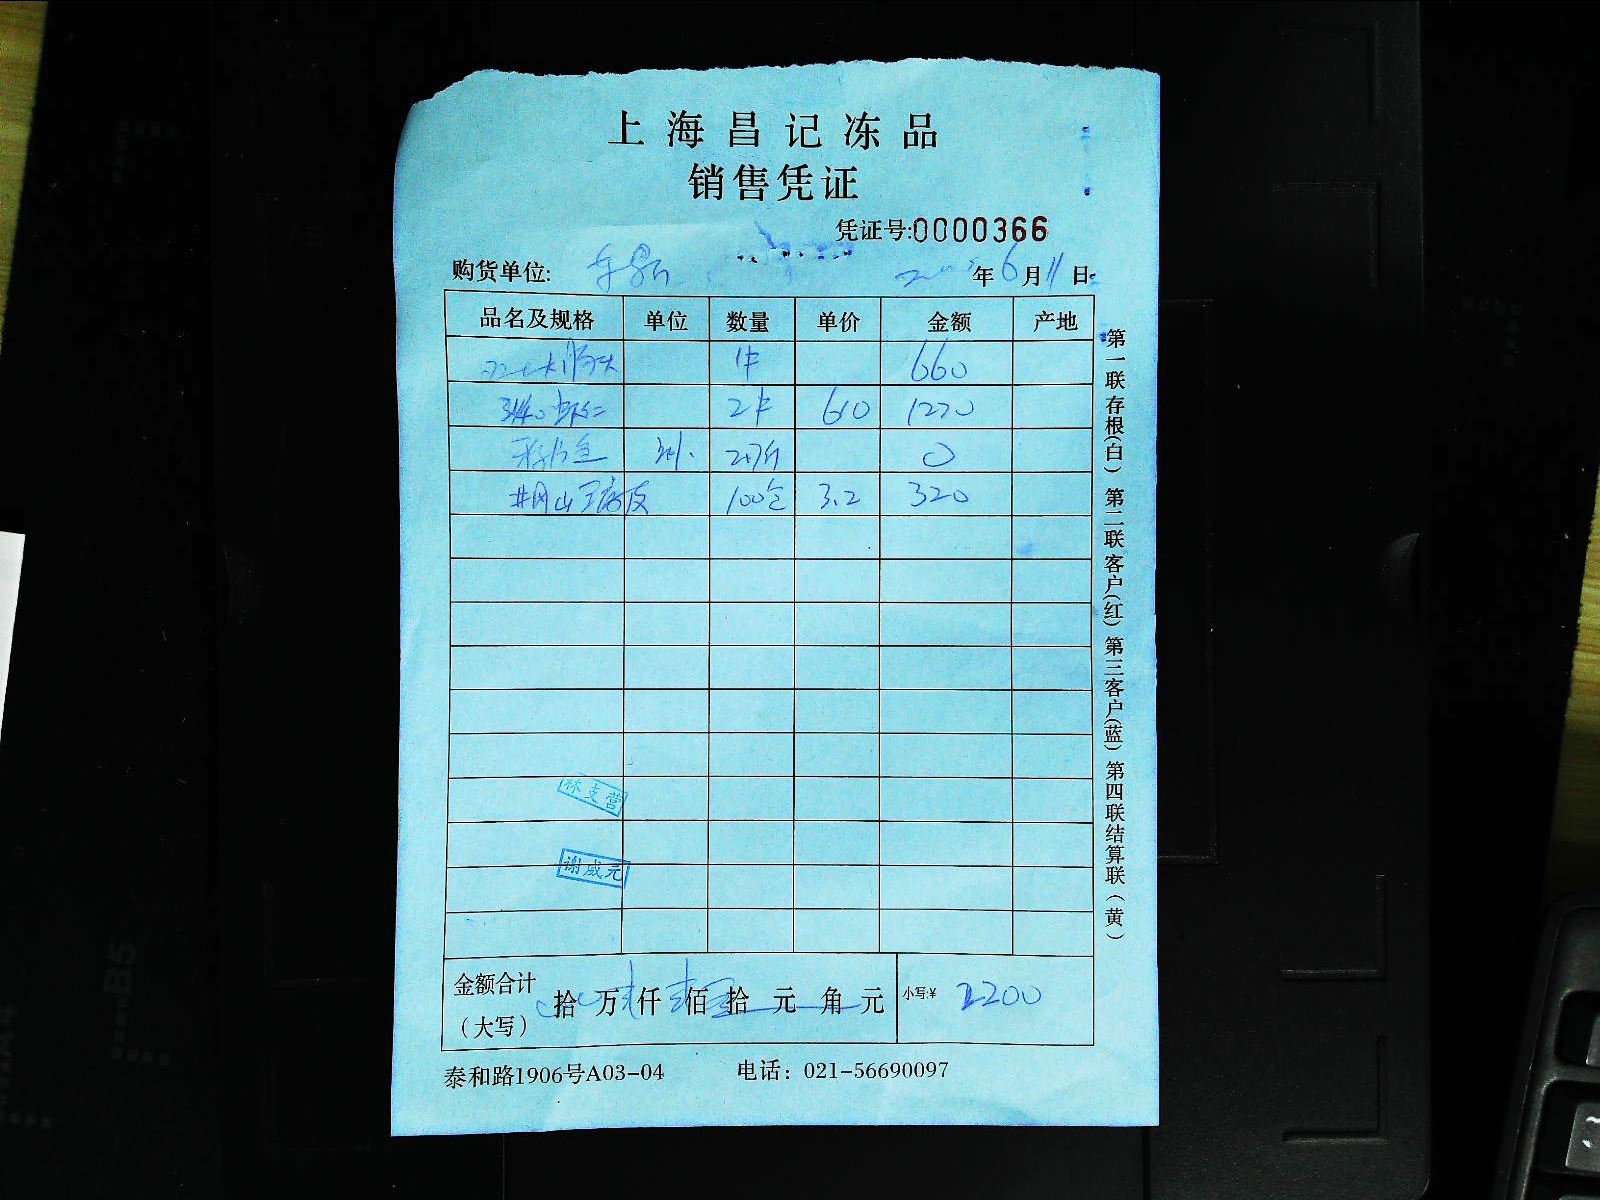 上海昌记冻品
销售凭证
凭证号:0000366
购货单位: 年6月11日
品名及规格 单位 数量 单价 金额 产地
1件 660
3140虾仁 2件 610 1220
0
井冈山豆腐皮 100包 3.2 320
林支营
谢威元
金额合计（大写） 拾 万 仟 佰 拾 元 角 元 小写:¥ 2200
泰和路1906号A03-04 电话：021-56690097
第一联存根(白) 第二联客户(红) 第三客户(蓝) 第四联结算联(黄)
B5